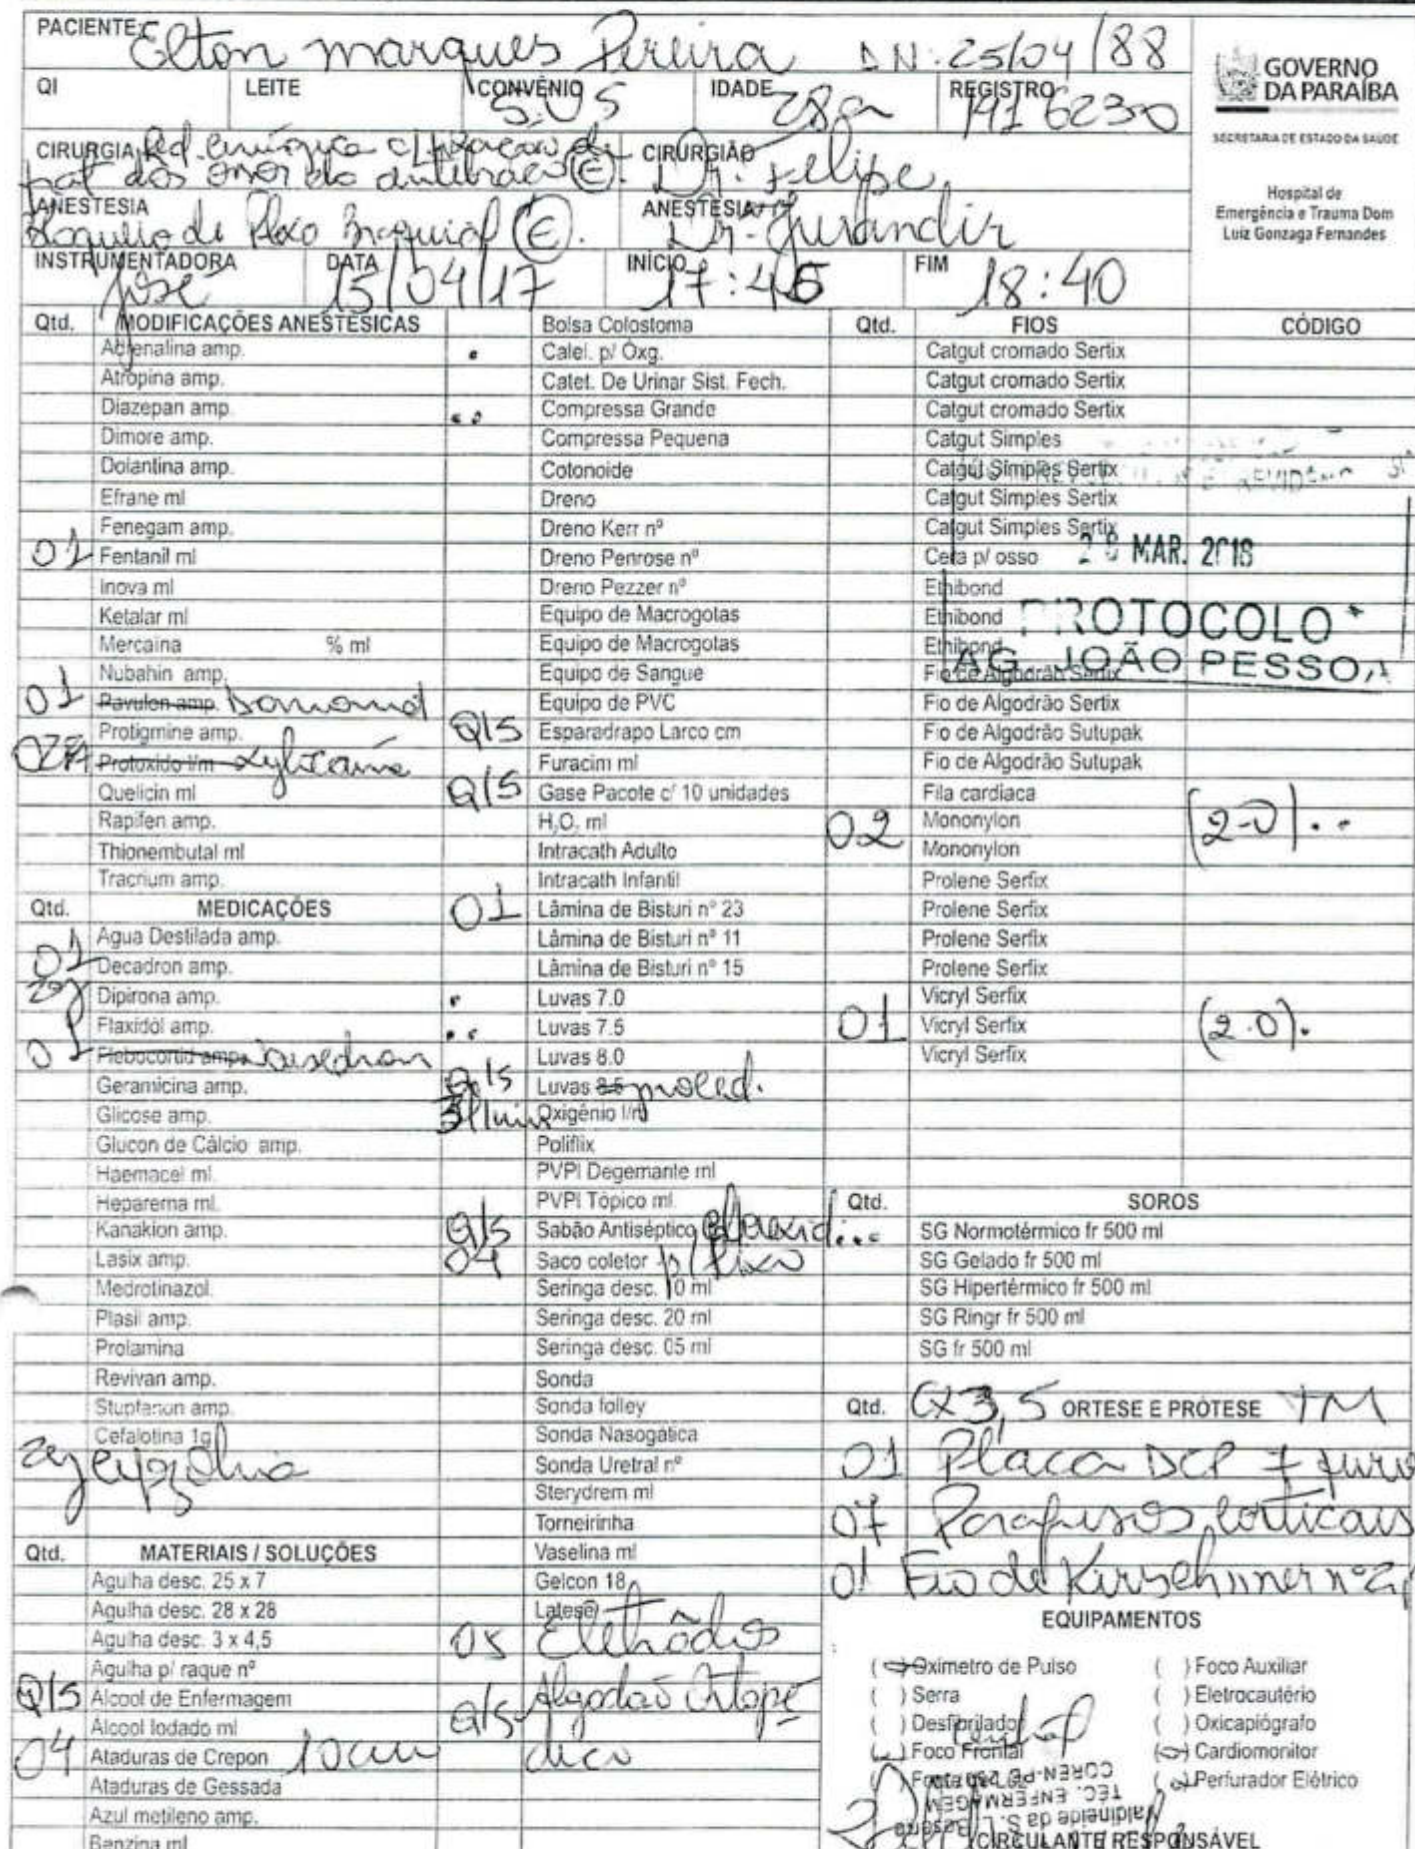 PACIENTE: Elton marques Pereira DN: 25/04/88
GOVERNO
DA PARAÍBA
SECRETARIA DE ESTADO DA SAÚDE
Hospital de
Emergência e Trauma Dom
Luiz Gonzaga Fernandes
QI LEITE CONVÊNIO S.U.S IDADE 28a REGISTRO 1416230
CIRURGIA Red. cirúrgica c/ fixação de
frat dos ossos do antebraço (E). CIRURGIÃO Dr. Felipe
ANESTESIA
Bloqueio de Plexo Braquial (E). ANESTESIA Dr. Jurandir
INSTRUMENTADORA José DATA 15/04/17 INÍCIO 17:45 FIM 18:40
Qtd. MODIFICAÇÕES ANESTÉSICAS
Adrenalina amp.
Atropina amp.
Diazepan amp.
Dimore amp.
Dolantina amp.
Efrane ml
Fenegam amp.
01 Fentanil ml
Inova ml
Ketalar ml
Mercaina % ml
Nubahin amp.
01 Pavulon amp. Dormonid
Protigmine amp.
Protoxido l/m Xylocaina
Quelicin ml
Rapifen amp.
Thionembutal ml
Tracrium amp.
Qtd. MEDICAÇÕES
Agua Destilada amp.
01 Decadron amp.
2g Dipirona amp.
Flaxidol amp.
01 Flebocortid amp.
Geramicina amp.
Glicose amp.
Glucon de Cálcio amp.
Haemacel ml.
Heparema ml.
Kanakion amp.
Lasix amp.
Medrotinazol.
Plasil amp.
Prolamina
Revivan amp.
Stuptanon amp.
Cefalotina 1g
2g
Qtd. MATERIAIS / SOLUÇÕES
Agulha desc. 25 x 7
Agulha desc. 28 x 28
Agulha desc. 3 x 4,5
Agulha p/ raque nº
Q/S Alcool de Enfermagem
Álcool Iodado ml
04 Ataduras de Crepon 10cm
Ataduras de Gessada
Azul metileno amp.
Benzina ml
Bolsa Colostoma
Calel. p/ Óxg.
Catet. De Urinar Sist. Fech.
Compressa Grande
Compressa Pequena
Cotonoide
Dreno
Dreno Kerr nº
Dreno Penrose nº
Dreno Pezzer nº
Equipo de Macrogotas
Equipo de Macrogotas
Equipo de Sangue
Equipo de PVC
Q/S Esparadrapo Larco cm
Furacim ml
Q/S Gase Pacote c/ 10 unidades
H₂O₂ ml
Intracath Adulto
Intracath Infantil
01 Lâmina de Bisturi nº 23
Lâmina de Bisturi nº 11
Lâmina de Bisturi nº 15
Luvas 7.0
Luvas 7.5
Luvas 8.0
Q/S Luvas 8.5 proced.
3l/min Oxigênio l/m
Poliflix
PVPI Degemante ml
PVPI Tópico ml.
Q/S Sabão Antiséptico
04 Saco coletor p/ lixo
Seringa desc. 10 ml
Seringa desc. 20 ml
Seringa desc. 05 ml
Sonda
Sonda folley
Sonda Nasogática
Sonda Uretral nº
Sterydrem ml
Torneirinha
Vaselina ml
Gelcon 18
Latese
05 Eletrôdos
Q/S Algodão Ortopé
dico
Qtd. FIOS CÓDIGO
Catgut cromado Sertix
Catgut cromado Sertix
Catgut cromado Sertix
Catgut Simples
Catgut Simples Sertix
Catgut Simples Sertix
Catgut Simples Sertix
Cera p/ osso
Ethibond
Ethibond
Ethibond
Fio de Algodrão Sertix
Fio de Algodrão Sertix
Fio de Algodrão Sutupak
Fio de Algodrão Sutupak
Fila cardiaca
02 Mononylon (2-0)
Mononylon
Prolene Serfix
Prolene Serfix
Prolene Serfix
Prolene Serfix
Vicryl Serfix
01 Vicryl Serfix (2.0).
Vicryl Serfix
MAR.
PROTOCOLO
AG. JOÃO PESSOA
Qtd. SOROS
SG Normotérmico fr 500 ml
SG Gelado fr 500 ml
SG Hipertérmico fr 500 ml
SG Ringr fr 500 ml
SG fr 500 ml
Qtd. CX 3,5 ORTESE E PRÓTESE TM
01 Placa DCP 7 furos
07 Parafusos corticais
01 Fio de Kirschnner nº2
EQUIPAMENTOS
( ) Oximetro de Pulso ( ) Foco Auxiliar
( ) Serra ( ) Eletrocautério
( ) Desfibrilador ( ) Oxicapiógrafo
( ) Foco Frontal ( ) Cardiomonitor
( ) Perfurador Elétrico
Valdineide da S. L. Bezerra
TÉC. ENFERMAGEM
CIRCULANTE RESPONSÁVEL